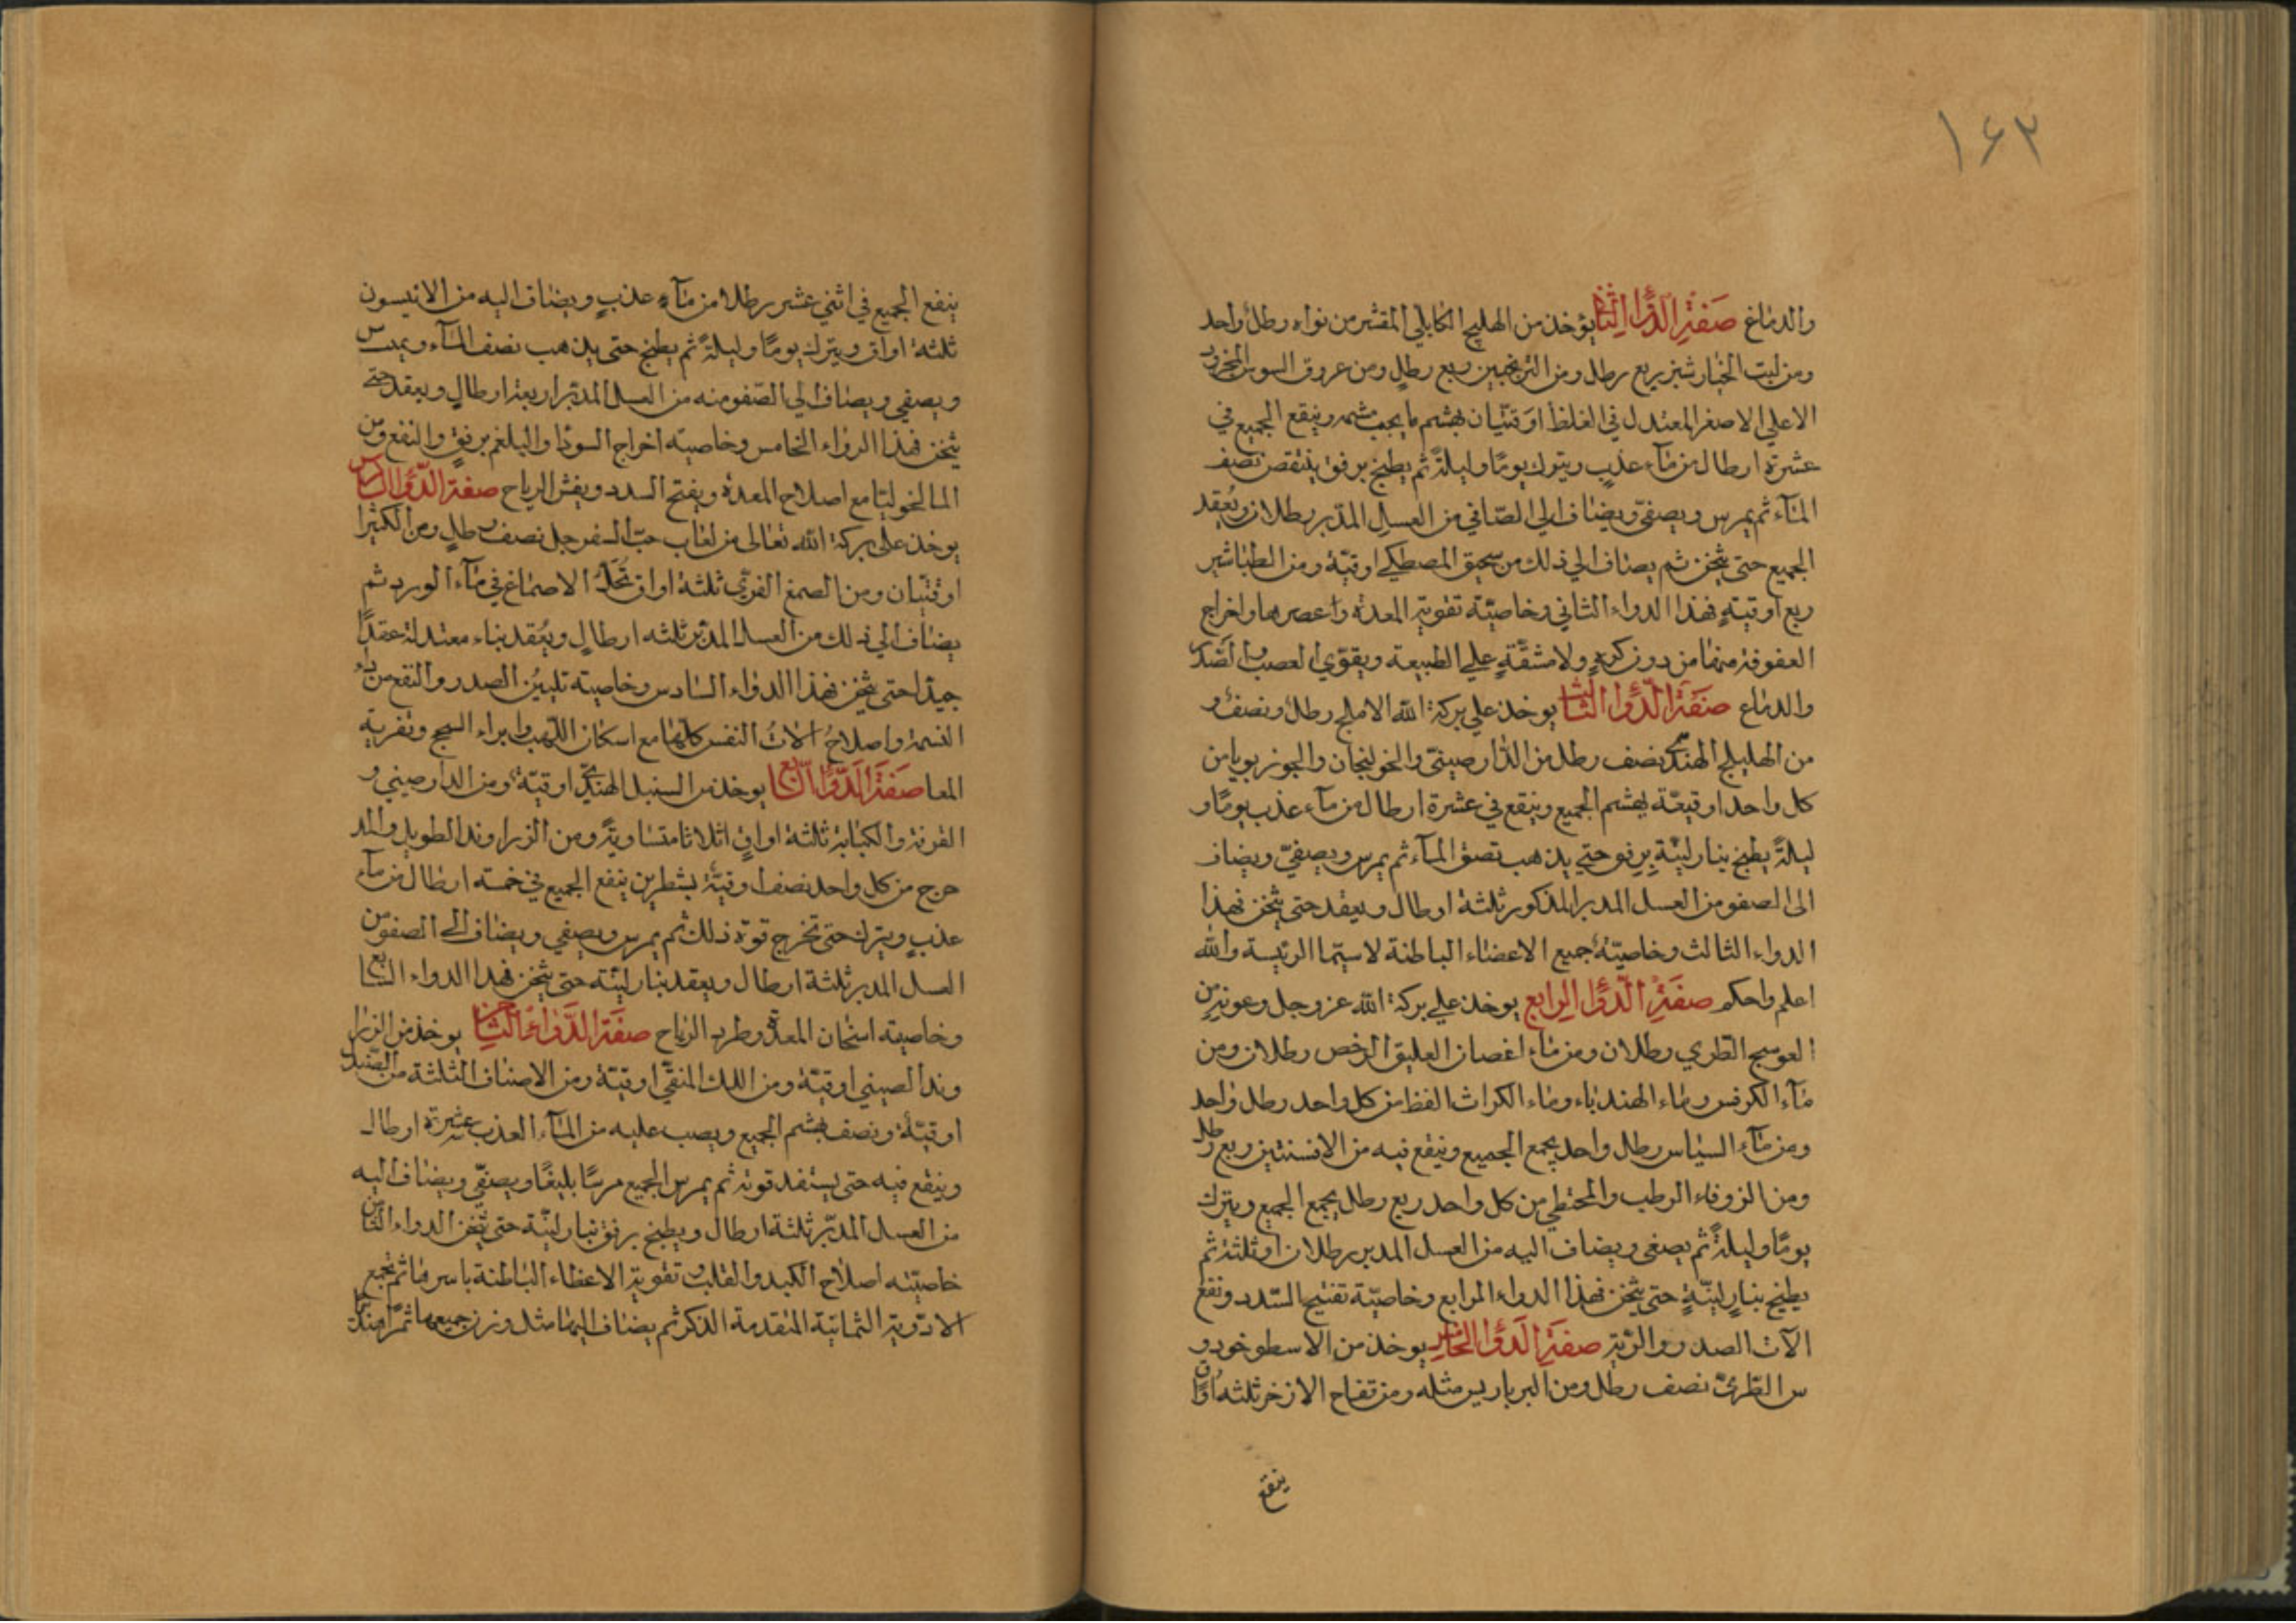 ١٤٢
والدماغ صفة الدواء الثاني يؤخذ من الهليلج الكابلي المقشر من نواه رطل واحد
ومن لبت الخيار شنبر ربع رطل ومن الترنجبين ربع رطل ومن عروق السوس المجرود
الاعلي الاصفر المعتدل في الغلظ اوقتيان يهشم ما يجب هشمه وينقع الجميع في
عشرة ارطال من مآء عذب ويترك يومًا وليلةً ثم يطبخ برفق ينتقص نصف
المآء ثم يمرس ويصفيّ ويضاف الي الصّافي من العسل المدبر رطلان ويُعقد
الجميع حتى يثخن ثم يضاف الي ذلك من سحيق المصطكي اوقيّة ومن الطباشير
ربع اوقيةٍ فهذا الدواء الثاني وخاصيّة تقوية المعدة واعصرها واخراج
العفوفة منها من دون كربٍ ولا مشقّةٍ علي الطبيعة ويقوّي العصب
والدماغ صفة الدواء الثا يوخذ علي بركة الله الاملج رطل ونصف و
من الهليلج الهندي نصف رطل من الدارصيني والخولنجان والجوزبويا من
كل واحد اوقيّة يهشم الجميع وينقع في عشرة ارطال من مآء عذب يومًا و
ليلةً يطبخ بنار لينّةٍ برفق حتي يذهب نصف المآء ثم يمرس ويصفيّ ويضاف
الى الصفو من العسل المدبر المذكور ثلثة ارطال ويعقد حتى يثخن فهذا
الدواء الثالث وخاصيّته جميع الاعضاء الباطنة لا سيّما الرئيسة والله
اعلم واحكم صفة الدواء الرابع يوخذ علي بركة الله عز وجل وعونه من
العوسج الطري رطلان ومن مآء اغصان العليق الرخص رطلان ومن
مآء الكرفس ومآء الهندباء ومآء الكراث الفظ من كل واحد رطل واحد
ومن مآء السياس رطل واحد يجمع الجميع وينقع فيه من الافسنتين ربع رطل
ومن الزوفاء الرطب والمحنطي من كل واحد ربع رطل يجمع الجميع ويترك
يومًا وليلةً ثم يصفى ويضاف اليه من العسل المدبر رطلان او ثلثة ثم
يطبخ بنارٍ لينّةٍ حتى يثخن فهذا الدواء الرابع وخاصيّة تفتيح السّدد ونفع
الآت الصدر والريّة صفة الدواء الخامس يوخذ من الاسطوخود و
س الطريّ نصف رطل ومن البرباريس مثله ومن تفاح الاذخر ثلثة اواق
ينقع
ينقع الجميع في اثني عشر رطلا من مآءٍ عذبٍ ويضاف اليه من الانيسون
ثلثة اواق ويترك يومًا وليلةً ثم يطبخ حتى يذهب نصف المآء ويمرس
ويصفي ويضاف الي الصّفو منه من العسل المدبّر اربعة ارطالٍ ويعقد حتى
يثخن فهذا الدواء الخامس وخاصيته اخراج السودا والبلغم برفقٍ والنفع من
المالخوليا مع اصلاح المعدة ويفتح السدد ويفش الرياح صفة الدواء السادس
يوخذ على بركة الله تعالى من لعاب حبّ السفرجل نصف رطلٍ ومن الكثيرا
اوقتيّان ومن الصمغ الفرّي ثلثة اواق تُحَلُّ الاصماغ في مآء الورد ثم
يضاف الي ذلك من العسل المدبّر ثلثه ارطالٍ ويُعقد بناء معتدلة عقدًا
جيدًا حتى يثخن فهذا الدواء السادس وخاصيته تليينُ الصدر والنفع من داء
النسمة واصلاحُ الاتُ النفس كلّها مع اسكان اللّهب وابراء السحج وتغرية
المعا صفة الدواء السابع يوخذ من السنبل الهنديّ اوقيّة ومن الدارصيني و
القرفة والكبابة ثلثة اواقٍ اثلاثا متساويةً ومن الزراوند الطويل والمد
حرج من كل واحد نصف اوقيّة بشطرين ينقع الجميع في خمسة ارطال من مآء
عذبٍ ويترك حتى تخرج قوّة ذلك ثم يمرس ويصفي ويضاف الى الصفو من
العسل المدبر ثلثة ارطال ويعقد بنار ليّنة حتى يثخن فهذا الدواء السابع
وخاصيته اسخان المعدة وطرد الرياح صفة الدواء الثامن يوخذ من الزرا
وند الصيني اوقيّة ومن اللك المنقّي اوقيّة ومن الاصناف الثلثة من الصّندل
اوقيّة ونصف يهشم الجميع ويصب عليه من المآء العذب عشرة ارطال
وينقع فيه حتى يستنفد قوته ثم يمرس الجميع مرسًا بليغًا ويصفّي ويضاف اليه
من العسل المدبّر ثلثة ارطال ويطبخ برفق بنار لينّة حتى يثخن الدواء الثامن
خاصيّته اصلاح الكبد والقلب وتقوية الاعظاء الباطنة باسرها ثم تجمع
الادوية الثمانية المتقدمة الذكر ثم يضاف اليها مثل وزن جميعها